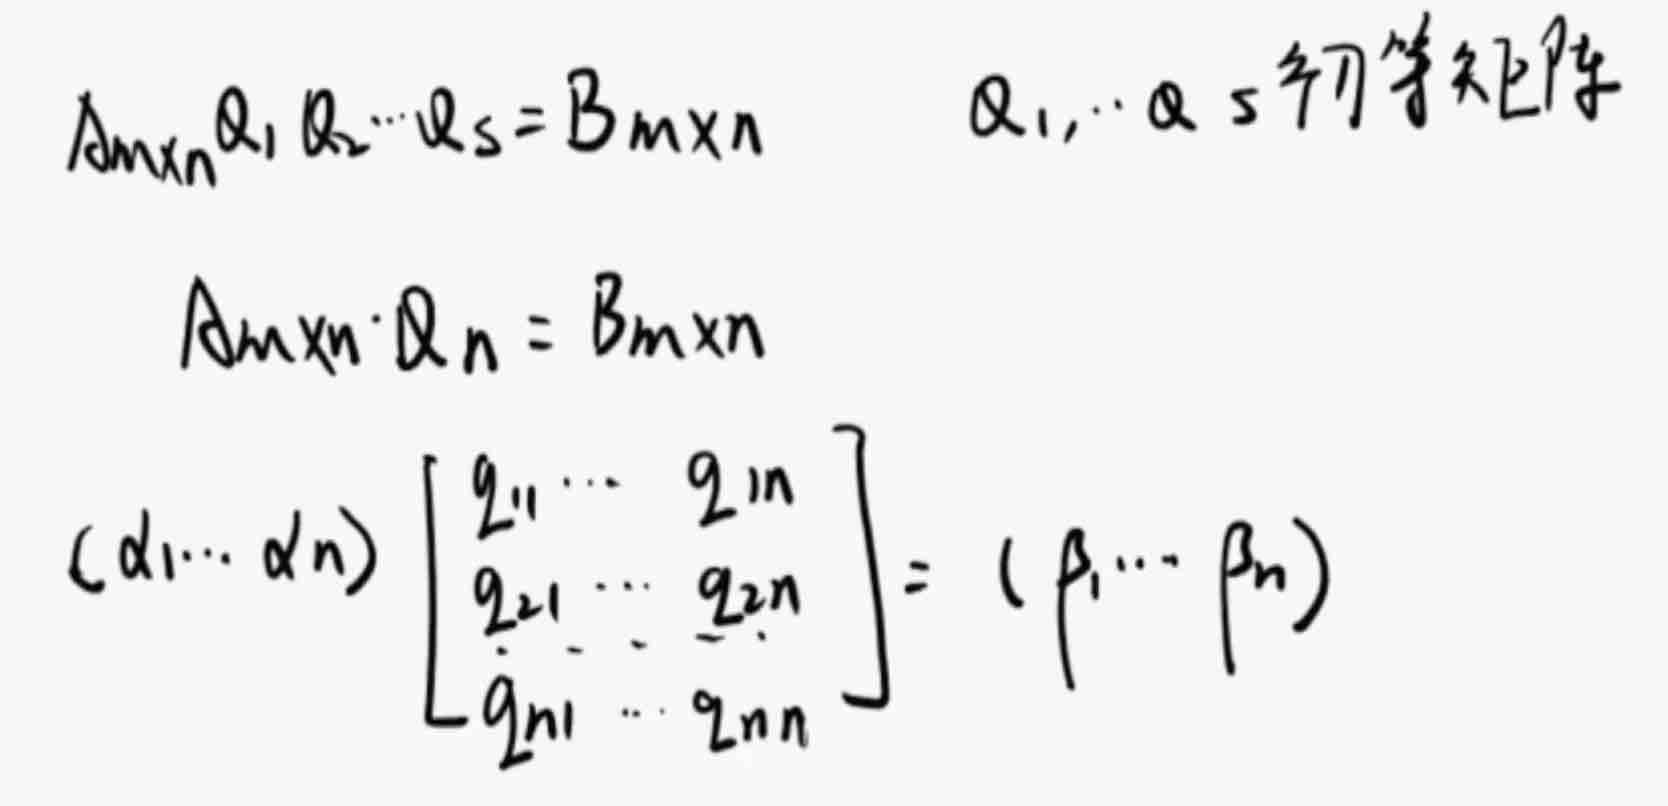 Aₘₓₙ Q₁ Q₂ ··· Qₛ = Bₘₓₙ   Q₁, ··· Qₛ 初等矩阵
Aₘₓₙ · Qₙ = Bₘₓₙ
(α₁ ··· αₙ) [ q₁₁ ··· q₁ₙ
q₂₁ ··· q₂ₙ
· · · · ·
qₙ₁ ··· qₙₙ ] = (β₁ ··· βₙ)